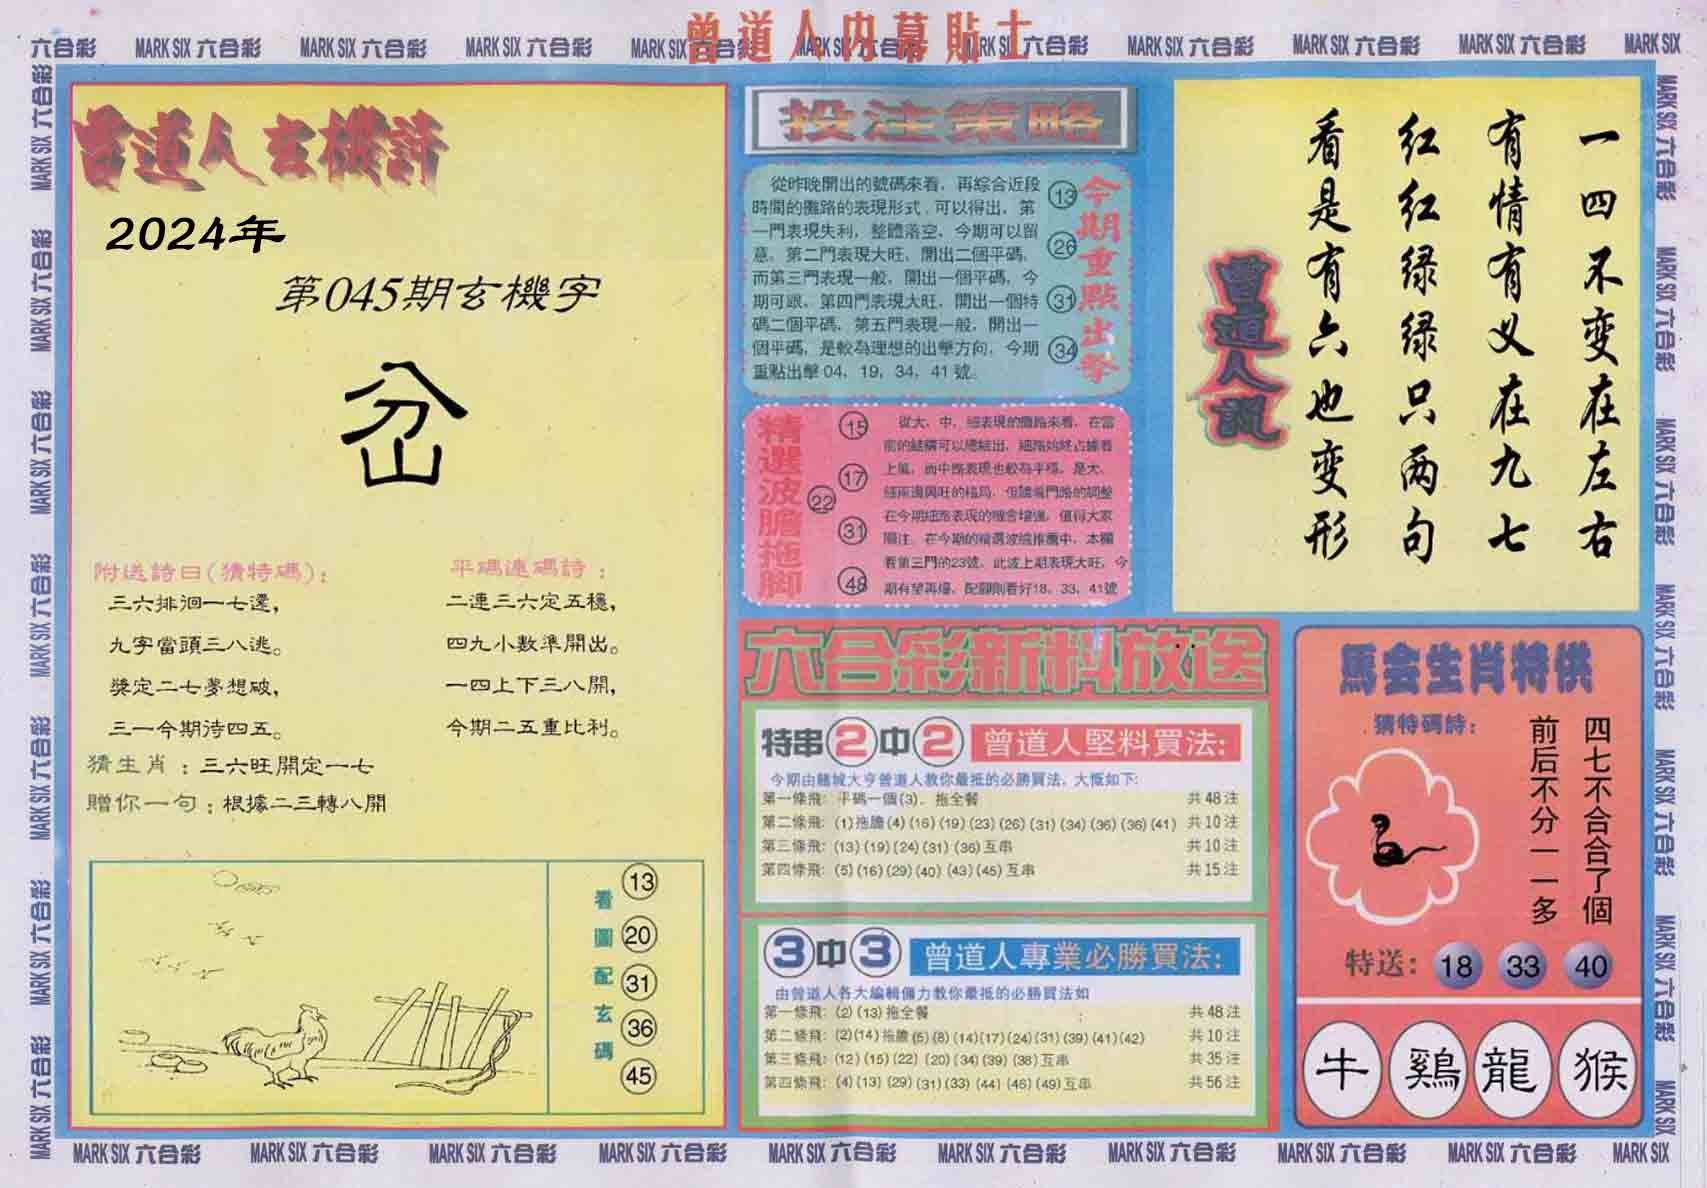 曾道人内幕貼士
六合彩 MARK SIX 六合彩 MARK SIX 六合彩 MARK SIX 六合彩 MARK SIX 六合彩 MARK SIX 六合彩 MARK SIX 六合彩 MARK SIX 六合彩 MARK SIX 六合彩 MARK SIX 六合彩 MARK SIX
曾道人玄機詩
2024年
第045期玄機字
岔
附送詩曰(猜特碼):
三六排徊一七還,
九字當頭三八逃。
獎定二七夢想破,
三一今期待四五。
平碼連碼詩:
二連三六定五穩,
四九小數準開出。
一四上下三八開,
今期二五重比利。
猜生肖:三六旺開定一七
贈你一句:根據二三轉八開
看圖配玄碼
13
20
31
36
45
投注策略
從昨晚開出的號碼來看,再綜合近段
時間的攤路的表現形式,可以得出,第
一門表現失利,整體落空,今期可以留
意。第二門表現大旺,開出二個平碼,
而第三門表現一般,開出一個平碼,今
期可跟,第四門表現大旺,開出一個特
碼二個平碼,第五門表現一般,開出一
個平碼,是較為理想的出擊方向,今期
重點出擊04,19,34,41號。
13
26
31
34
今期重點出擊
精選波膽拖脚
15
17
22
31
48
從大、中、細表現的攤路來看,在當
前的結構可以總結出,細路始終占據着
上風,而中路表現也較為平穩,是大、
細兩邊興旺的格局,但隨着門路的調整
在今期細路表現的機會增強,值得大家
關注。在今期的精選波膽推薦中,本欄
看第三門的23號,此波上期表現大旺,今
期有望再爆,配脚則看好18,33,41號
六合彩新料放送
特串2中2 曾道人堅料買法:
今期由賭城大亨曾道人教你最抵的必勝買法,大慨如下:
第一條飛: 平碼一個(3),拖全餐 共48注
第二條飛: (1)拖膽(4)(16)(19)(23)(26)(31)(34)(36)(36)(41) 共10注
第三條飛: (13)(19)(24)(31)(36)互串 共10注
第四條飛: (5)(16)(29)(40)(43)(45)互串 共15注
3中3 曾道人專業必勝買法:
由曾道人各大編輯傾力教你最抵的必勝買法如
第一條飛: (2)(13)拖全餐 共48注
第二條飛: (2)(14)拖膽(5)(8)(14)(17)(24)(31)(39)(41)(42) 共10注
第三條飛: (12)(15)(22)(20)(34)(39)(38)互串 共35注
第四條飛: (4)(13)(29)(31)(33)(44)(46)(49)互串 共56注
一四不变在左右
有情有义在九七
红红绿绿只两句
看是有六也变形
曾道人說
馬会生肖特供
猜特碼詩:
四七不合合了個
前后不分一一多
特送: 18 33 40
牛 鷄 龍 猴
MARK SIX 六合彩 MARK SIX 六合彩 MARK SIX 六合彩 MARK SIX 六合彩 MARK SIX 六合彩 MARK SIX 六合彩 MARK SIX 六合彩 MARK SIX 六合彩 MARK SIX 六合彩 MARK SIX